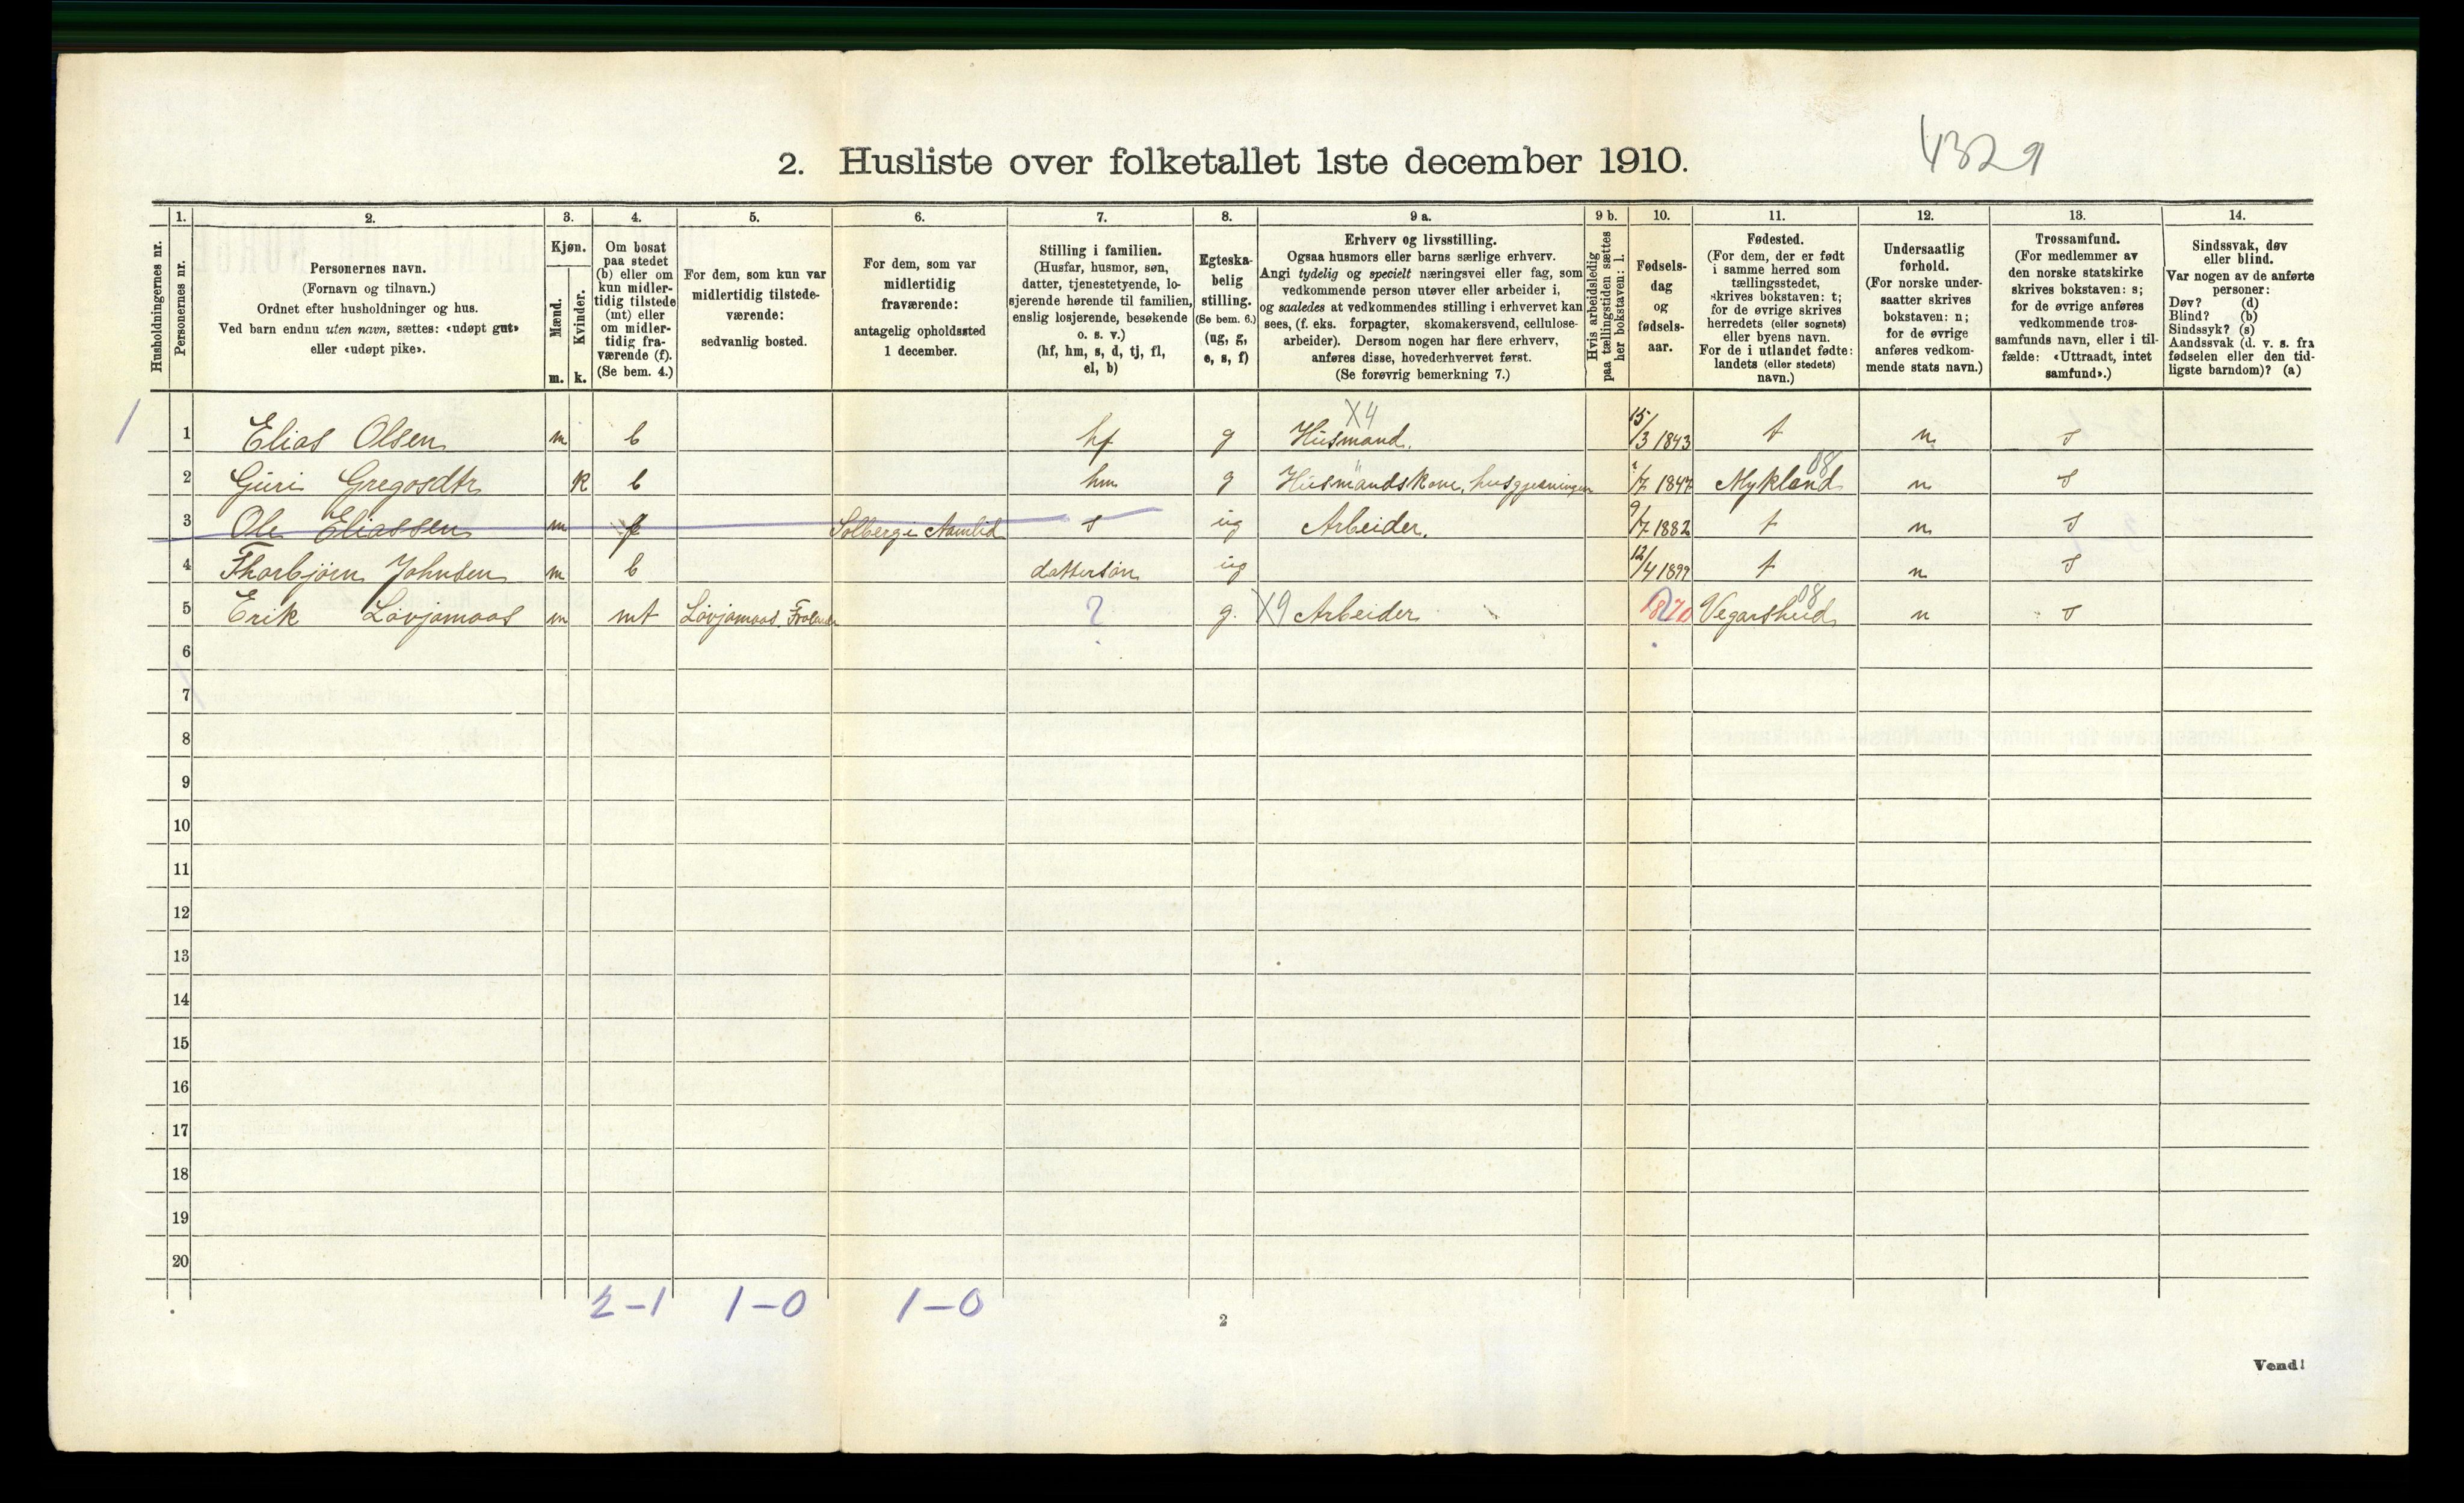 2. Husliste over folketallet 1ste december 1910.
4329
Husholdningernes nr.
1.
Personernes nr.
2.
Personernes navn.
(Fornavn og tilnavn.)
Ordnet efter husholdninger og hus.
Ved barn endnu uten navn, sættes: «udøpt gut»
eller «udøpt pike».
3.
Kjøn.
Mænd.
Kvinder.
m.
k.
4.
Om bosat
paa stedet
(b) eller om
kun midler-
tidig tilstede
(mt) eller
om midler-
tidig fra-
værende (f).
(Se bem. 4.)
5.
For dem, som kun var
midlertidig tilstede-
værende:
sedvanlig bosted.
6.
For dem, som var
midlertidig
fraværende:
antagelig opholdssted
1 december.
7.
Stilling i familien.
(Husfar, husmor, søn,
datter, tjenestetyende, lo-
sjerende hørende til familien,
enslig losjerende, besøkende
o. s. v.)
(hf, hm, s, d, tj, fl,
el, b)
8.
Egteska-
belig
stilling.
(Se bem. 6.)
(ug, g,
e, s, f)
9 a.
Erhverv og livsstilling.
Ogsaa husmors eller barns særlige erhverv.
Angi tydelig og specielt næringsvei eller fag, som
vedkommende person utøver eller arbeider i,
og saaledes at vedkommendes stilling i erhvervet kan
sees, (f. eks. forpagter, skomakersvend, cellulose-
arbeider). Dersom nogen har flere erhverv,
anføres disse, hovederhvervet først.
(Se forøvrig bemerkning 7.)
9 b.
Hvis arbeidsledig
paa tællingstiden sættes
her bokstaven: l.
10.
Fødsels-
dag
og
fødsels-
aar.
11.
Fødested.
(For dem, der er født
i samme herred som
tællingsstedet,
skrives bokstaven: t;
for de øvrige skrives
herredets (eller sognets)
eller byens navn.
For de i utlandet fødte:
landets (eller stedets)
navn.)
12.
Undersaatlig
forhold.
(For norske under-
saatter skrives
bokstaven: n;
for de øvrige
anføres vedkom-
mende stats navn.)
13.
Trossamfund.
(For medlemmer av
den norske statskirke
skrives bokstaven: s;
for de øvrige anføres
vedkommende tros-
samfunds navn, eller i til-
fælde: «Uttraadt, intet
samfund».)
14.
Sindssvak, døv
eller blind.
Var nogen av de anførte
personer:
Døv? (d)
Blind? (b)
Sindssyk? (s)
Aandssvak (d. v. s. fra
fødselen eller den tid-
ligste barndom)? (a)
1 1 Elias Olsen m b hf g X4 Husmand. 15/3 1843 t n s
2 Guri Gregosdtr k b hm g Husmandskone, husgjerningen /7 1847 Mykland 08 n s
3 Ole Eliassen m f Solberg i Aamlid s ug Arbeider. 9/7 1882 t n s
4 Thorbjørn Johnsen m b dattersøn ug 12/4 1899 t n s
5 Erik Løvjomaas m mt Løvjomaas, Froland ? g. X9 Arbeider 1870 Vegarsheid 08 n s
6
7
8
9
10
11
12
13
14
15
16
17
18
19
20
2-1 1-0 1-0
2
Vend!